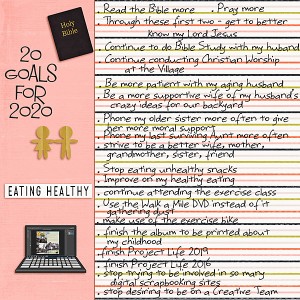 Holy
Bible
20
GOALS
FOR
2020
EATING HEALTHY
. Read the Bible more . Pray more
. Through these first two - get to better
know my Lord Jesus
. Continue to do Bible Study with my husband
. Continue conducting Christian Worship
at the Village
. Be more patient with my aging husband
. Be a more supportive wife of my husband's
crazy ideas for our backyard
. Phone my older sister more often to give
her more moral support
. Phone my last surviving Aunt more often
. strive to be a better wife, mother,
grandmother, sister, friend
. Stop eating unhealthy snacks
. Improve on my healthy eating
. continue attending the exercise class
. Use the Walk a Mile DVD instead of it
gathering dust
. make use of the exercise bike
. finish the album to be printed about
my childhood
. finish Project Life 2019
. finish Project Life 2016
. stop trying to be involved in so many
digital scrapbooking sites
. stop desiring to be on a Creative Team